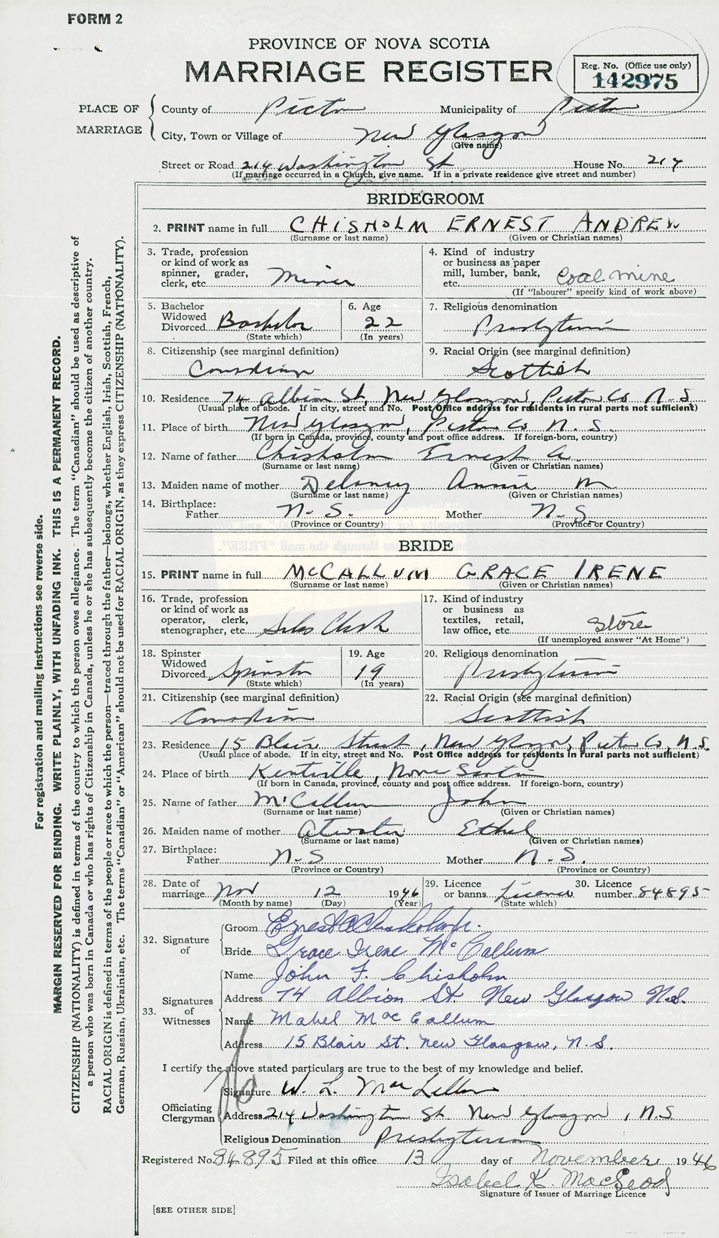 FORM 2
PROVINCE OF NOVA SCOTIA
MARRIAGE REGISTER
Reg. No. (Office use only)
142975
PLACE OF MARRIAGE
County of Pictou Municipality of Pictou
City, Town or Village of New Glasgow
(Give name)
Street or Road 214 Washington St House No. 214
(If marriage occurred in a Church, give name. If in a private residence give street and number)
BRIDEGROOM
2. PRINT name in full CHISHOLM ERNEST ANDREW
(Surname or last name) (Given or Christian names)
3. Trade, profession or kind of work as spinner, grader, clerk, etc. Miner
4. Kind of industry or business as paper mill, lumber, bank, etc. Coal mine
(If "labourer" specify kind of work above)
5. Bachelor Widowed Divorced Bachelor
(State which)
6. Age 22
(In years)
7. Religious denomination Presbyterian
8. Citizenship (see marginal definition) Canadian
9. Racial Origin (see marginal definition) Scottish
10. Residence 74 Albion St, New Glasgow, Pictou Co N.S.
(Usual place of abode. If in city, street and No. Post Office address for residents in rural parts not sufficient)
11. Place of birth New Glasgow, Pictou Co N.S.
(If born in Canada, province, county and post office address. If foreign-born, country)
12. Name of father Chisholm Ernest A.
(Surname or last name) (Given or Christian names)
13. Maiden name of mother Delaney Annie M
(Surname or last name) (Given or Christian names)
14. Birthplace: Father N.S. Mother N.S
(Province or Country) (Province or Country)
BRIDE
15. PRINT name in full McCALLUM GRACE IRENE
(Surname or last name) (Given or Christian names)
16. Trade, profession or kind of work as operator, clerk, stenographer, etc. Sales Clerk
17. Kind of industry or business as textiles, retail, law office, etc. Store
(If unemployed answer "At Home")
18. Spinster Widowed Divorced Spinster
(State which)
19. Age 19
(In years)
20. Religious denomination Presbyterian
21. Citizenship (see marginal definition) Canadian
22. Racial Origin (see marginal definition) Scottish
23. Residence 15 Blair Street, New Glasgow, Pictou Co, N.S.
(Usual place of abode. If in city, street and No. Post Office address for residents in rural parts not sufficient)
24. Place of birth Kentville, Nova Scotia
(If born in Canada, province, county and post office address. If foreign-born, country)
25. Name of father McCallum John
(Surname or last name) (Given or Christian names)
26. Maiden name of mother Atwater Ethel
(Surname or last name) (Given or Christian names)
27. Birthplace: Father N.S Mother N.S.
(Province or Country) (Province or Country)
28. Date of marriage Nov 12 1946
(Month by name) (Day) (Year)
29. Licence or banns Licence
(State which)
30. Licence number 84895
32. Signature of
Groom Ernest A Chisholm Jr.
Bride Grace Irene McCallum
33. Signatures of Witnesses
Name John F. Chisholm
Address 74 Albion St. New Glasgow N.S.
Name Mabel MacCallum
Address 15 Blair St. New Glasgow, N.S.
I certify the above stated particulars are true to the best of my knowledge and belief.
Officiating Clergyman
Signature W. L. MacLellan
Address 214 Washington St. New Glasgow, N.S
Religious Denomination Presbyterian
Registered No. 84895 Filed at this office 13 day of November 1946
Isabel K. MacLeod
Signature of Issuer of Marriage Licence
[SEE OTHER SIDE]
For registration and mailing instructions see reverse side.
MARGIN RESERVED FOR BINDING. WRITE PLAINLY, WITH UNFADING INK. THIS IS A PERMANENT RECORD.
CITIZENSHIP (NATIONALITY) is defined in terms of the country to which the person owes allegiance. The term "Canadian" should be used as descriptive of
a person who was born in Canada or who has rights of Citizenship in Canada, unless he or she has subsequently become the citizen of another country.
RACIAL ORIGIN is defined in terms of the people or race to which the person—traced through the father—belongs, whether English, Irish, Scottish, French,
German, Russian, Ukrainian, etc. The terms "Canadian" or "American" should not be used for RACIAL ORIGIN, as they express CITIZENSHIP (NATIONALITY).